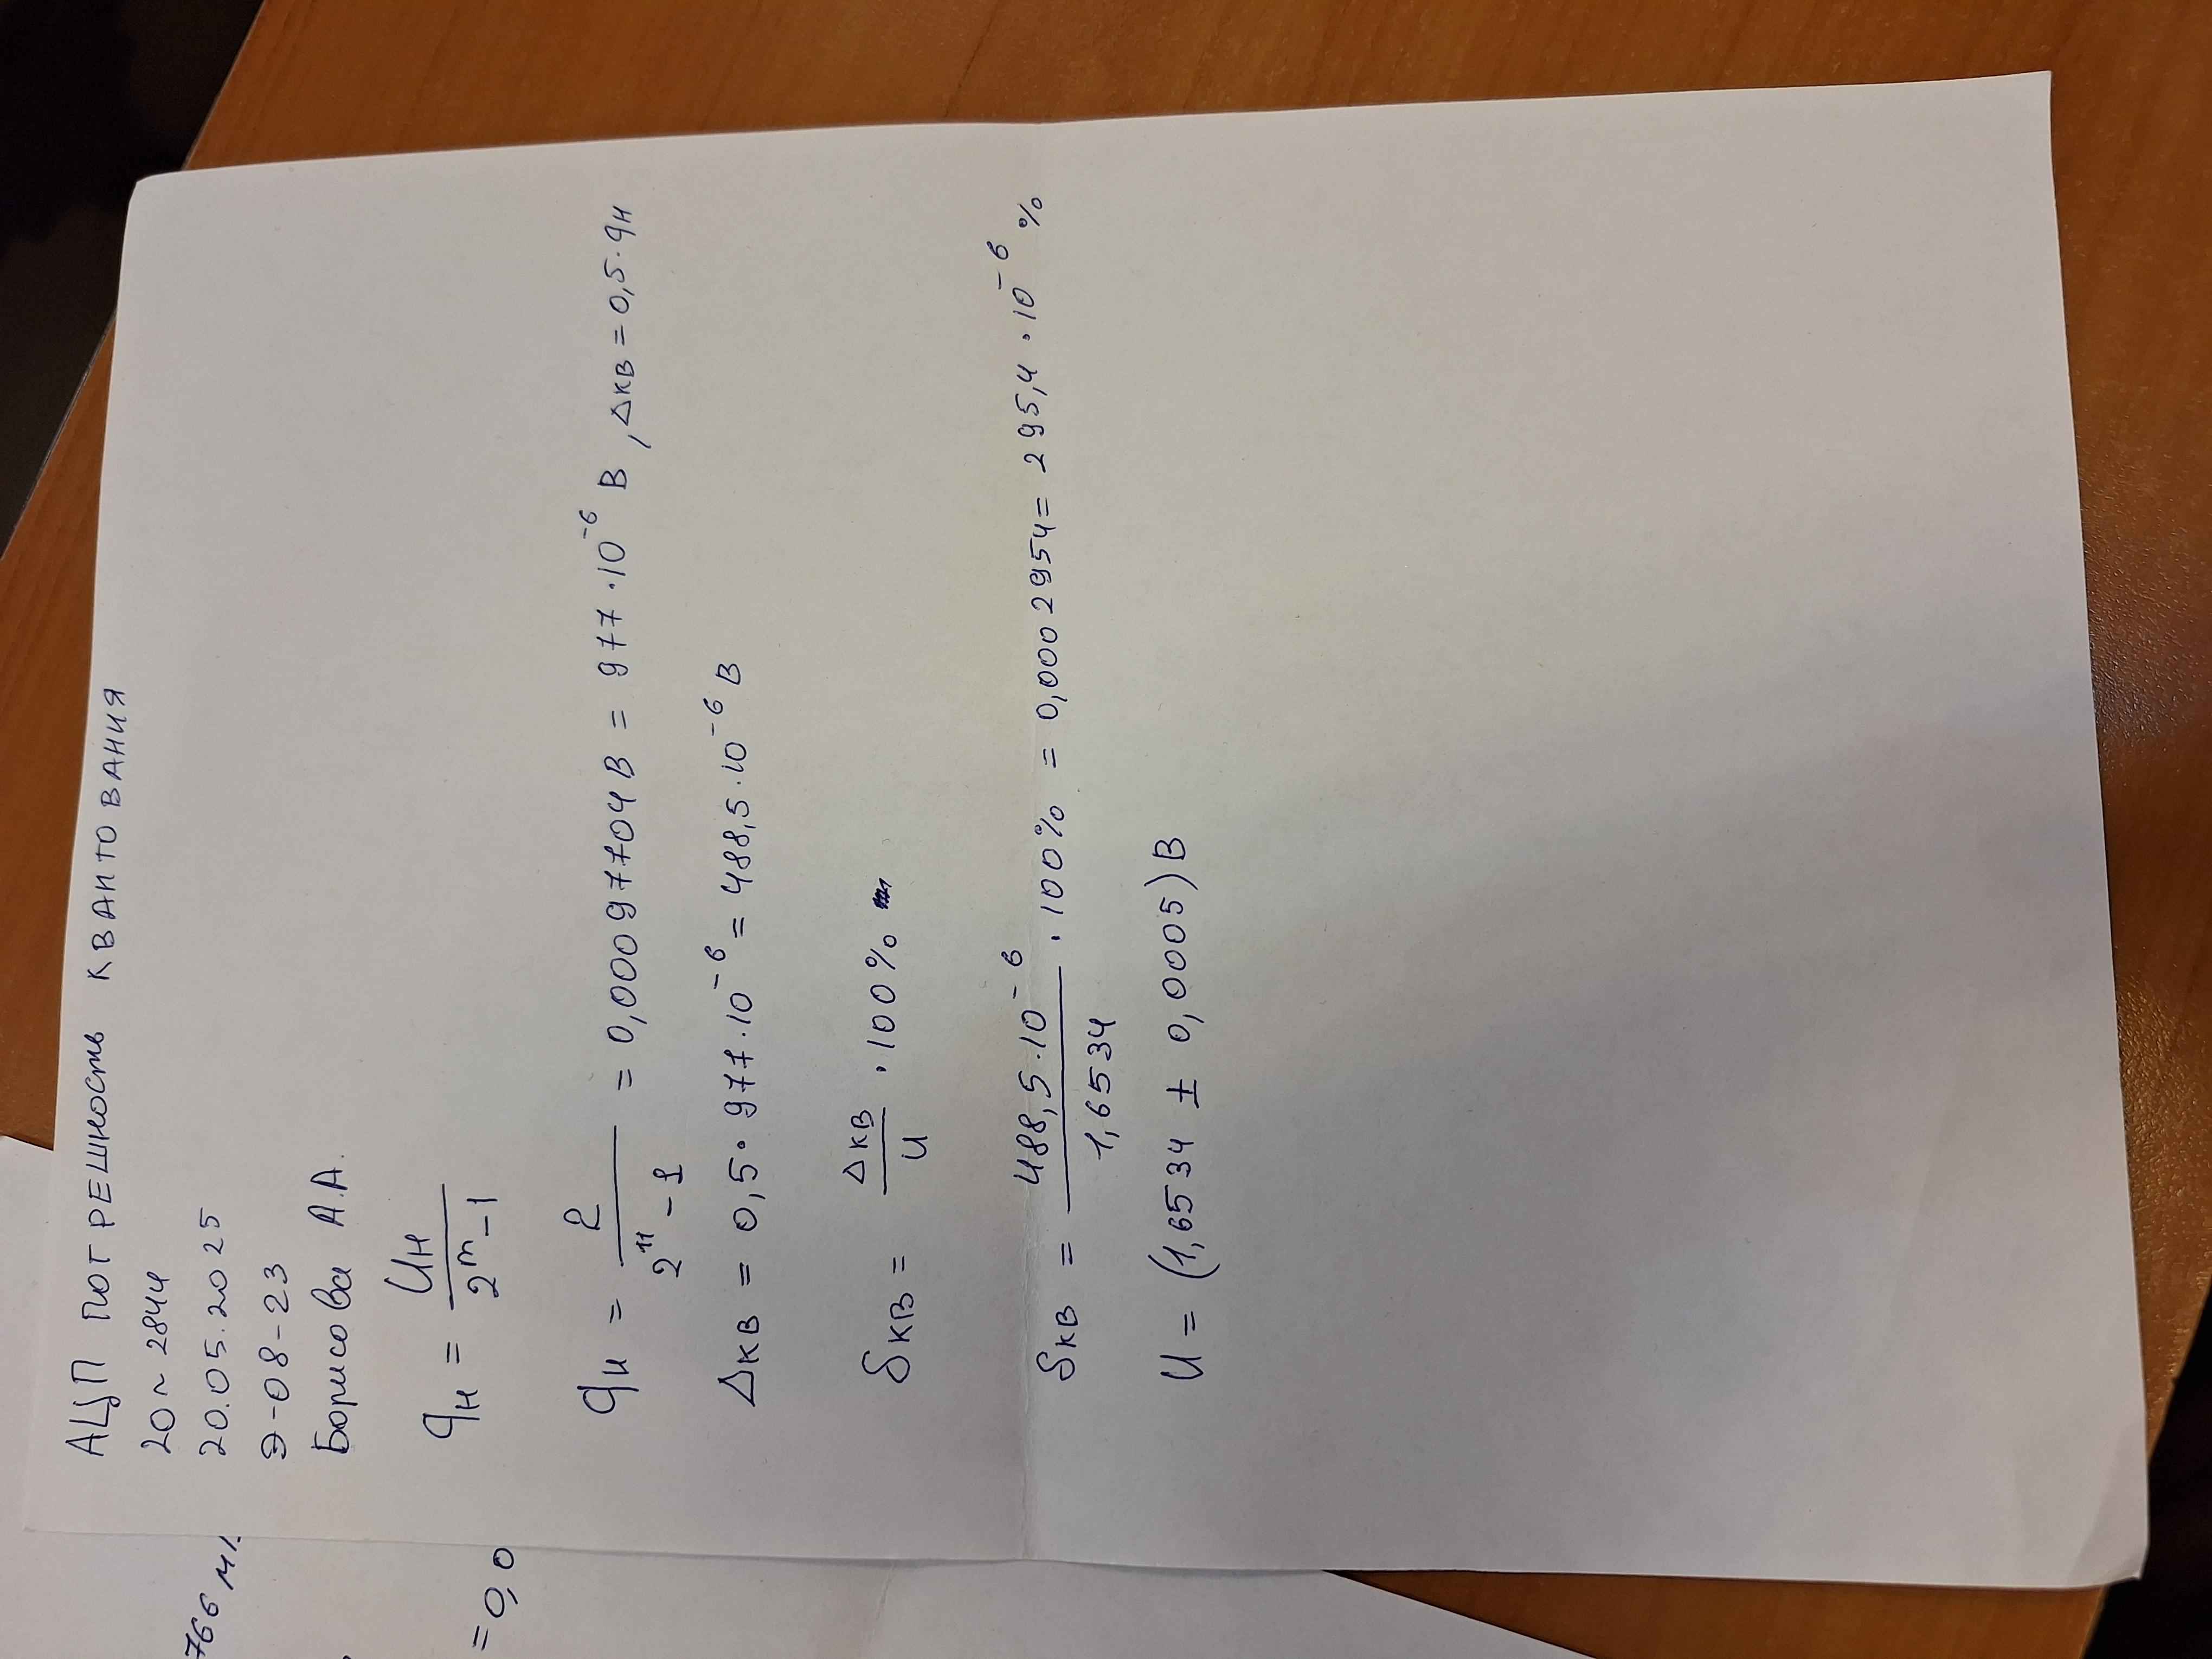 АЦП ПОГРЕШНОСТЬ КВАНТОВАНИЯ
20~2844
20.05.2025
Э-08-23
Борисова А.А.
qн = Uн / 2^m - 1
qн = 2 / 2^11 - 1 = 0,00097704 В = 977·10^-6 В, Δкв = 0,5·qн
Δкв = 0,5·977·10^-6 = 488,5·10^-6 В
δкв = Δкв / U · 100%
δкв = 488,5·10^-6 / 1,6534 · 100% = 0,0002954 = 295,4·10^-6 %
U = (1,6534 ± 0,0005) В
766
= 0,0